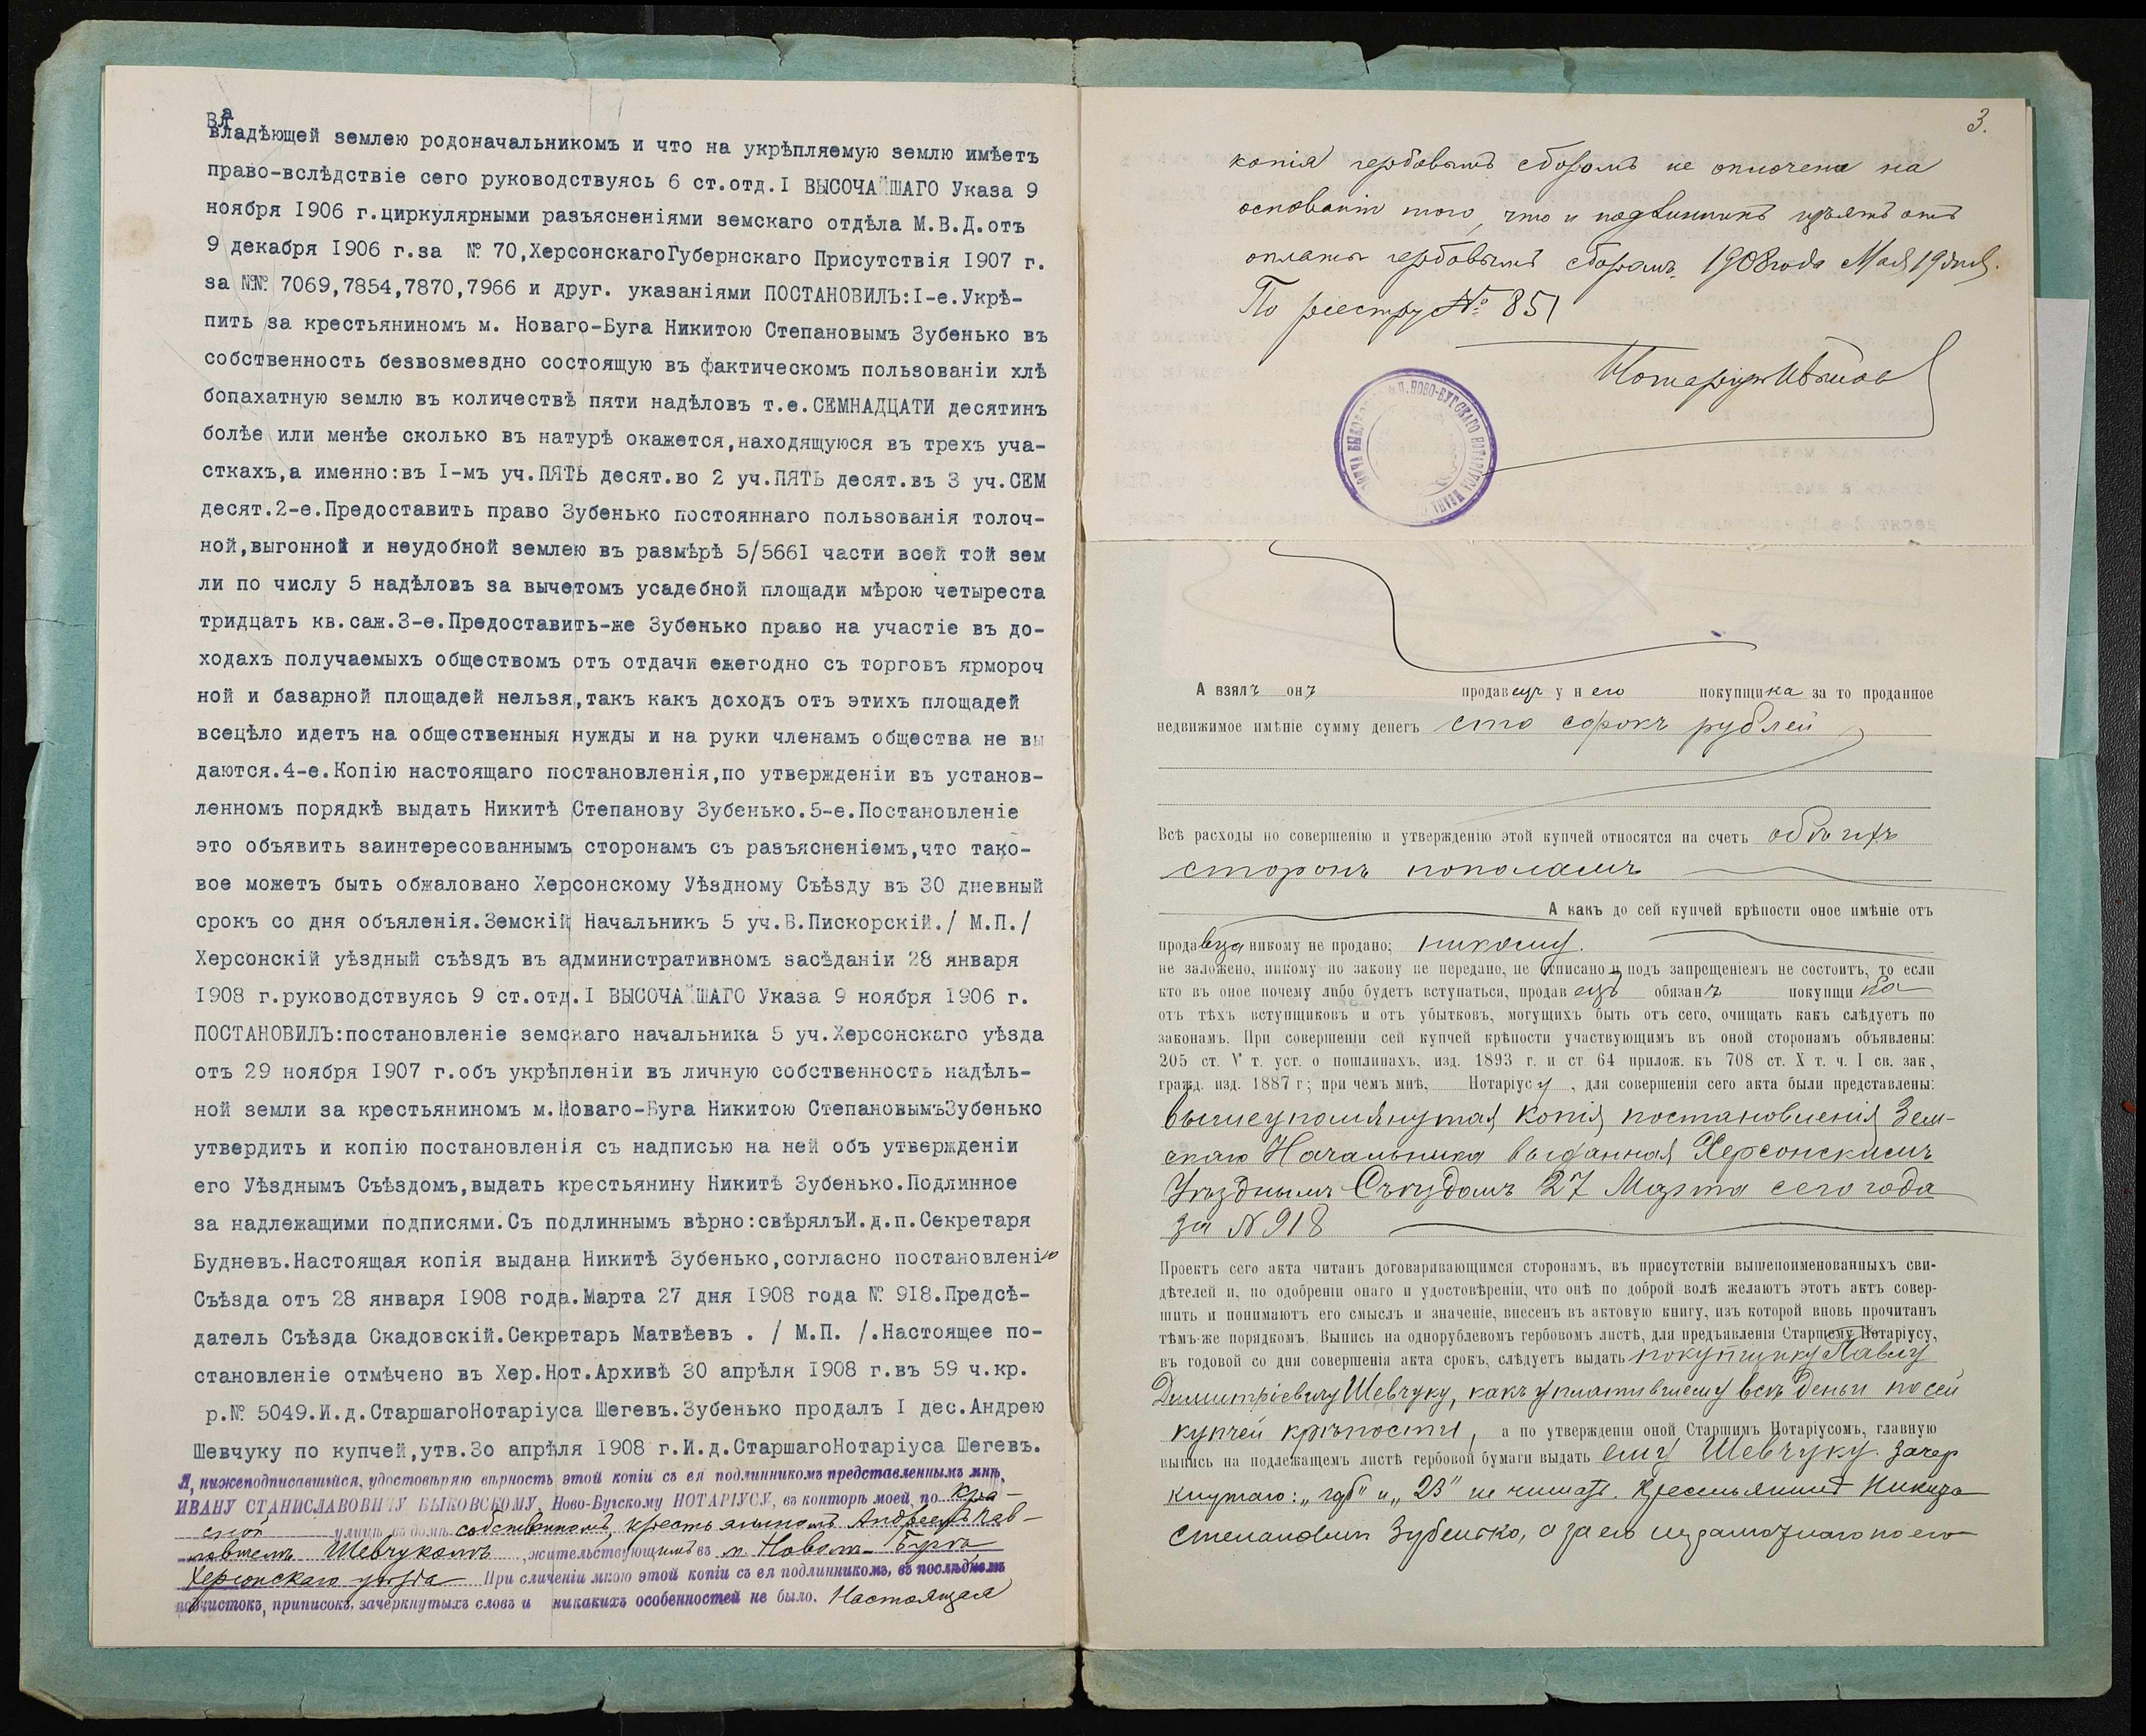 Вла
владѣющей землею родоначальникомъ и что на укрѣпляемую землю имѣетъ
право-вслѣдствіе сего руководствуясь 6 ст.отд.I ВЫСОЧАЙШАГО Указа 9
ноября 1906 г.циркулярными разъясненіями земскаго отдѣла М.В.Д.отъ
9 декабря 1906 г.за № 70,ХерсонскагоГубернскаго Присутствія 1907 г.
за №№ 7069,7854,7870,7966 и друг. указаніями ПОСТАНОВИЛЪ:I-е.Укрѣ-
пить за крестьяниномъ м. Новаго-Буга Никитою Степановымъ Зубенько въ
собственность безвозмездно состоящую въ фактическомъ пользованіи хлѣ
бопахатную землю въ количествѣ пяти надѣловъ т.е.СЕМНАДЦАТИ десятинъ
болѣе или менѣе сколько въ натурѣ окажется,находящуюся въ трехъ уча-
сткахъ,а именно:въ I-мъ уч.ПЯТЬ десят.во 2 уч.ПЯТЬ десят.въ 3 уч.СЕМ
десят.2-е.Предоставить право Зубенько постояннаго пользованія толоч-
ной,выгонной и неудобной землею въ размѣрѣ 5/5661 части всей той зем
ли по числу 5 надѣловъ за вычетомъ усадебной площади мѣрою четыреста
тридцать кв.саж.3-е.Предоставить-же Зубенько право на участіе въ до-
ходахъ получаемыхъ обществомъ отъ отдачи ежегодно съ торговъ ярмороч
ной и базарной площадей нельзя,такъ какъ доходъ отъ этихъ площадей
всецѣло идетъ на общественныя нужды и на руки членамъ общества не вы
даются.4-е.Копію настоящаго постановленія,по утвержденіи въ установ-
ленномъ порядкѣ выдать Никитѣ Степанову Зубенько.5-е.Постановленіе
это объявить заинтересованнымъ сторонамъ съ разъясненіемъ,что тако-
вое можетъ быть обжаловано Херсонскому Уѣздному Съѣзду въ 30 дневный
срокъ со дня объяленія.Земскій Начальникъ 5 уч.В.Пискорскій./ М.П./
Херсонскій уѣздный съѣздъ въ административномъ засѣданіи 28 января
1908 г.руководствуясь 9 ст.отд.I ВЫСОЧАЙШАГО Указа 9 ноября 1906 г.
ПОСТАНОВИЛЪ:постановленіе земскаго начальника 5 уч.Херсонскаго уѣзда
отъ 29 ноября 1907 г.объ укрѣпленіи въ личную собственность надѣль-
ной земли за крестьяниномъ м.Новаго-Буга Никитою СтепановымъЗубенько
утвердить и копію постановленія съ надписью на ней объ утвержденіи
его Уѣзднымъ Съѣздомъ,выдать крестьянину Никитѣ Зубенько.Подлинное
за надлежащими подписями.Съ подлиннымъ вѣрно:свѣрялъИ.д.п.Секретаря
Будневъ.Настоящая копія выдана Никитѣ Зубенько,согласно постановленію
Съѣзда отъ 28 января 1908 года.Марта 27 дня 1908 года № 918.Предсѣ-
датель Съѣзда Скадовскій.Секретарь Матвѣевъ . / М.П. /.Настоящее по-
становленіе отмѣчено въ Хер.Нот.Архивѣ 30 апрѣля 1908 г.въ 59 ч.кр.
р.№ 5049.И.д.СтаршагоНотаріуса Шегевъ.Зубенько продалъ I дес.Андрею
Шевчуку по купчей,утв.3о апрѣля 1908 г.И.д.СтаршагоНотаріуса Шегевъ.
Я, нижеподписавшійся, удостовѣряю вѣрность этой копіи съ ея подлинникомъ представленнымъ мнѣ,
ИВАНУ СТАНИСЛАВОВИЧУ БЫКОВСКОМУ, Ново-Бугскому НОТАРІУСУ, въ конторѣ моей, по Кра-
сной улицѣ въ домѣ собственномъ, крестьяниномъ Андреемъ Пав-
ловичемъ Шевчукомъ, жительствующимъ въ м. Новомъ-Бугѣ
Херсонскаго уѣзда При сличеніи мною этой копіи съ ея подлинникомъ, въ послѣднемъ
подчистокъ, приписокъ, зачеркнутыхъ словъ и никакихъ особенностей не было. Настоящая
3.
копія гербовымъ сборомъ не оплочена на
основаніи того, что и подлинникъ изъятъ отъ
оплаты гербовымъ сборомъ. 1908 года Мая 19 дня.
По реестру № 851
Нотаріусъ
А взялъ онъ продавецъ у него покупщика за то проданное
недвижимое имѣніе сумму денегъ сто сорокъ рублей
Всѣ расходы по совершенію и утвержденію этой купчей относятся на счетъ обѣихъ
сторонъ пополамъ
А какъ до сей купчей крѣпости оное имѣніе отъ
продавца никому не продано; никому.
не заложено, никому по закону не передано, не описано и подъ запрещеніемъ не состоитъ, то если
кто въ оное почему либо будетъ вступаться, продавецъ обязанъ покупщика
отъ тѣхъ вступщиковъ и отъ убытковъ, могущихъ быть отъ сего, очищать какъ слѣдуетъ по
законамъ. При совершеніи сей купчей крѣпости участвующимъ въ оной сторонамъ объявлены:
205 ст. V т. уст. о пошлинахъ, изд. 1893 г. и ст 64 прилож. къ 708 ст. X т. ч. I св. зак,
гражд. изд. 1887 г; при чемъ мнѣ, Нотаріусу, для совершенія сего акта были представлены:
вышеупомянутая копія постановленія Зем-
скаго Начальника выданная Херсонскимъ
Уѣзднымъ Съѣздомъ 27 Марта сего года
за N 918
Проектъ сего акта читанъ договаривающимся сторонамъ, въ присутствіи вышепоименованныхъ сви-
дѣтелей и, по одобреніи онаго и удостовѣреніи, что онѣ по доброй волѣ желаютъ этотъ актъ совер-
шить и понимаютъ его смыслъ и значеніе, внесенъ въ актовую книгу, изъ которой вновь прочитанъ
тѣмъ-же порядкомъ. Выпись на однорублевомъ гербовомъ листѣ, для предъявленія Старшему Нотаріусу,
въ годовой со дня совершенія акта срокъ, слѣдуетъ выдать покупщику Павлу
Димитріевичу Шевчуку, какъ уплатившему всѣ деньги по сей
купчей крѣпости, а по утвержденіи оной Старшимъ Нотаріусомъ, главную
выпись на подлежащемъ листѣ гербовой бумаги выдать ему Шевчуку. Зачер
кнутаго: и „23" не читать. Крестьянинъ Никита
Степановичъ Зубенько, а за его неграмотнаго по его